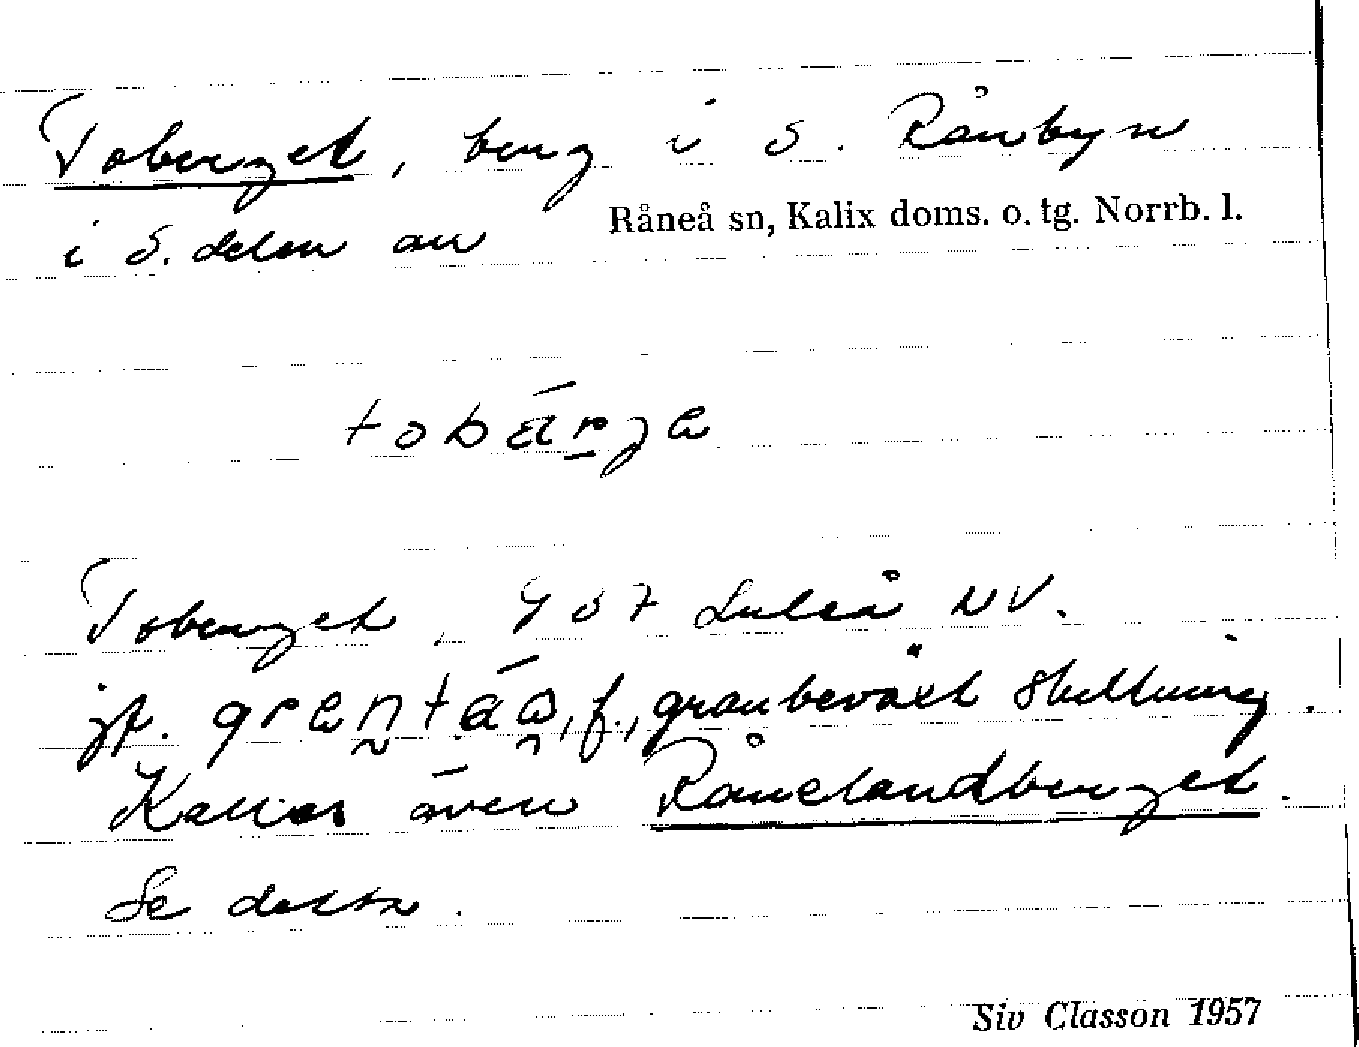 Toberget, berg i S. Rånbyn
i S. delen av Råneå sn, Kalix doms. o. tg. Norrb. l.
tobárga
Toberget, 907 Luleå NV.
jf. grentáo, f., granbeväxt sluttning.
Kallas även Rånelandberget.
Se detta.
Siv Classon 1957